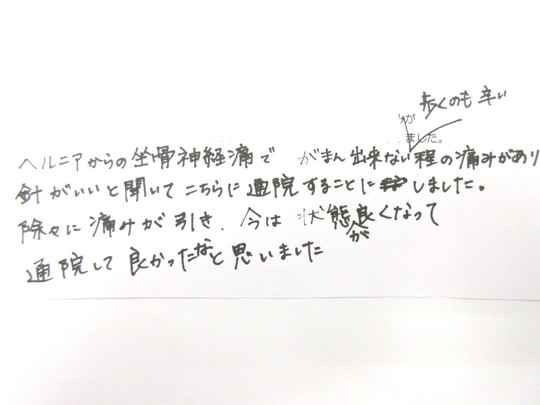 歩くのも辛い
が
ました。
ヘルニアからの坐骨神経痛で がまん出来ない程の痛みがあり
針がいいと聞いてこちらに通院することにしました。
除々に痛みが引き、今は状態良くなって
が
通院して良かったなと思いました